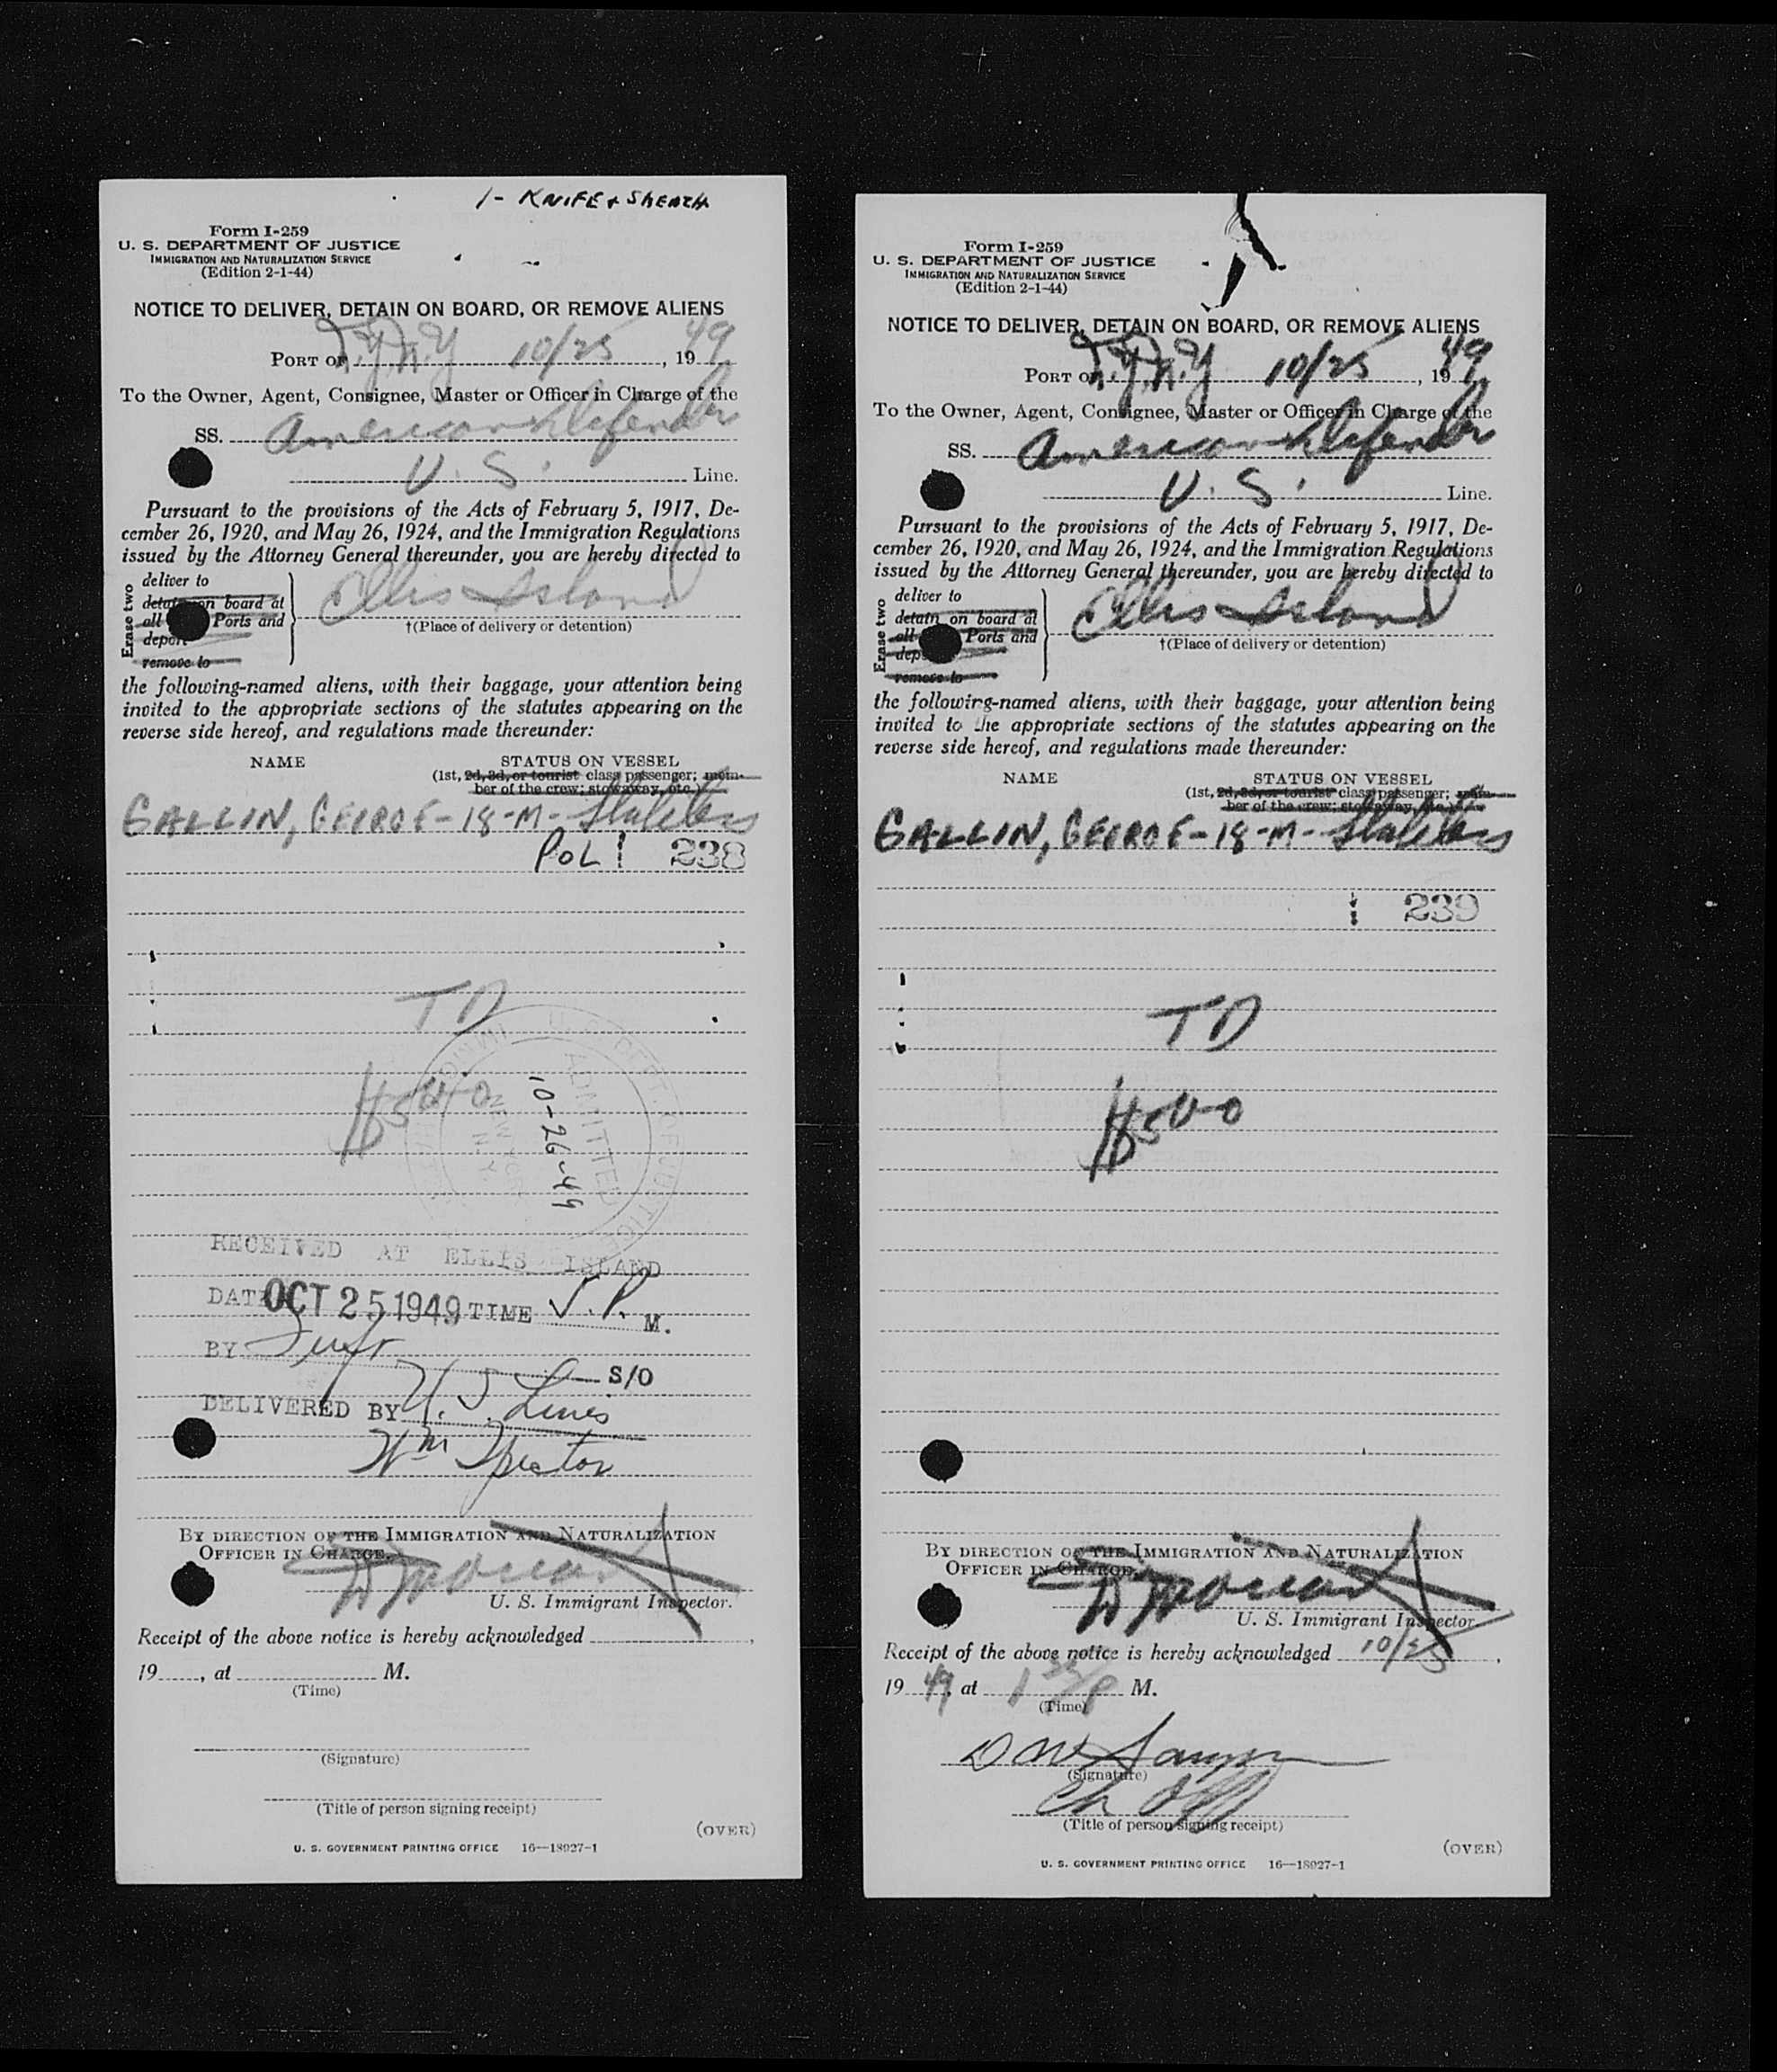 1- KNIFE + SHEATH
Form I-259
U. S. DEPARTMENT OF JUSTICE
IMMIGRATION AND NATURALIZATION SERVICE
(Edition 2-1-44)
NOTICE TO DELIVER, DETAIN ON BOARD, OR REMOVE ALIENS
PORT OF N.Y. 10/25, 1949
To the Owner, Agent, Consignee, Master or Officer in Charge of the
SS. American Defender
U. S. Line.
Pursuant to the provisions of the Acts of February 5, 1917, De-
cember 26, 1920, and May 26, 1924, and the Immigration Regulations
issued by the Attorney General thereunder, you are hereby directed to
Erase two
deliver to
detain on board at
all Ports and
deport
remove to
Ellis Island
†(Place of delivery or detention)
the following-named aliens, with their baggage, your attention being
invited to the appropriate sections of the statutes appearing on the
reverse side hereof, and regulations made thereunder:
NAME STATUS ON VESSEL
(1st, 2d, 3d, or tourist class passenger; mem-
ber of the crew; stowaway, etc.)
GALLIN, GEORGE - 18 - M - Stateless
POL 238
TD
$500
U. S. DEPT. OF JUSTICE
ADMITTED
10-26-49
NEW YORK
N.Y.
RECEIVED AT ELLIS ISLAND
DATE OCT 25 1949 TIME P. M.
BY S/O
DELIVERED BY U.S. Lines
Wm Spector
BY DIRECTION OF THE IMMIGRATION AND NATURALIZATION
OFFICER IN CHARGE.
U. S. Immigrant Inspector.
Receipt of the above notice is hereby acknowledged ,
19 , at M.
(Time)
(Signature)
(Title of person signing receipt)
(OVER)
U. S. GOVERNMENT PRINTING OFFICE 16—18927-1
Form I-259
U. S. DEPARTMENT OF JUSTICE
IMMIGRATION AND NATURALIZATION SERVICE
(Edition 2-1-44)
NOTICE TO DELIVER, DETAIN ON BOARD, OR REMOVE ALIENS
PORT OF N.Y. 10/25, 1949
To the Owner, Agent, Consignee, Master or Officer in Charge of the
SS. American Defender
U. S. Line.
Pursuant to the provisions of the Acts of February 5, 1917, De-
cember 26, 1920, and May 26, 1924, and the Immigration Regulations
issued by the Attorney General thereunder, you are hereby directed to
Erase two
deliver to
detain on board at
all Ports and
dep
remove to
Ellis Island
†(Place of delivery or detention)
the following-named aliens, with their baggage, your attention being
invited to the appropriate sections of the statutes appearing on the
reverse side hereof, and regulations made thereunder:
NAME STATUS ON VESSEL
(1st, 2d, 3d, or tourist class passenger; mem-
ber of the crew; stowaway, etc.)
GALLIN, GEORGE - 18 - M - Stateless
239
TD
$500
BY DIRECTION OF THE IMMIGRATION AND NATURALIZATION
OFFICER IN CHARGE.
U. S. Immigrant Inspector.
Receipt of the above notice is hereby acknowledged 10/25,
1949, at P M.
(Time)
(Signature)
Ch Off
(Title of person signing receipt)
(OVER)
U. S. GOVERNMENT PRINTING OFFICE 16—18927-1